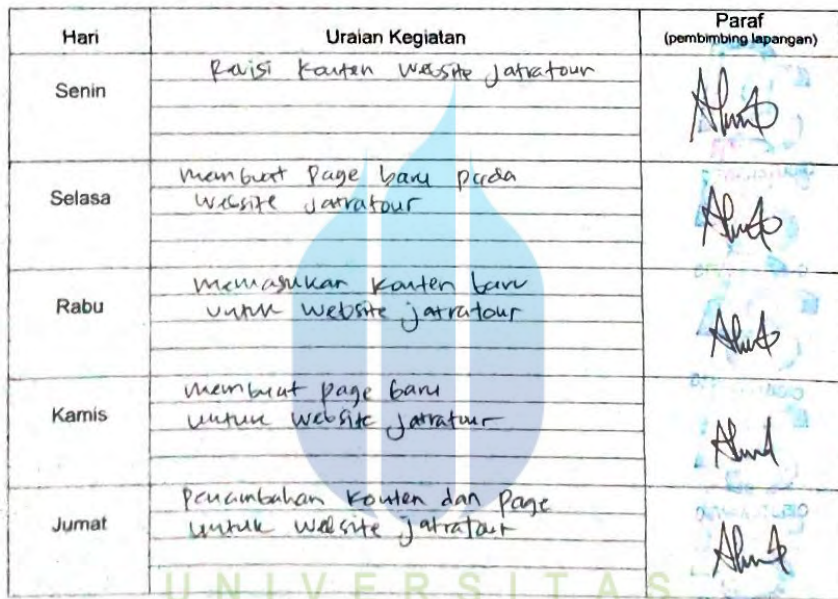 Hari Uraian Kegiatan Paraf
(pembimbing lapangan)
Senin Revisi Konten Website Jatratour
Selasa membuat Page baru pada
website Jatratour
Rabu memasukan Konten baru
untuk website jatratour
Kamis membuat page baru
untuk website Jatratour
Jumat Penambahan Konten dan Page
untuk website jatratour
UNIVERSITAS